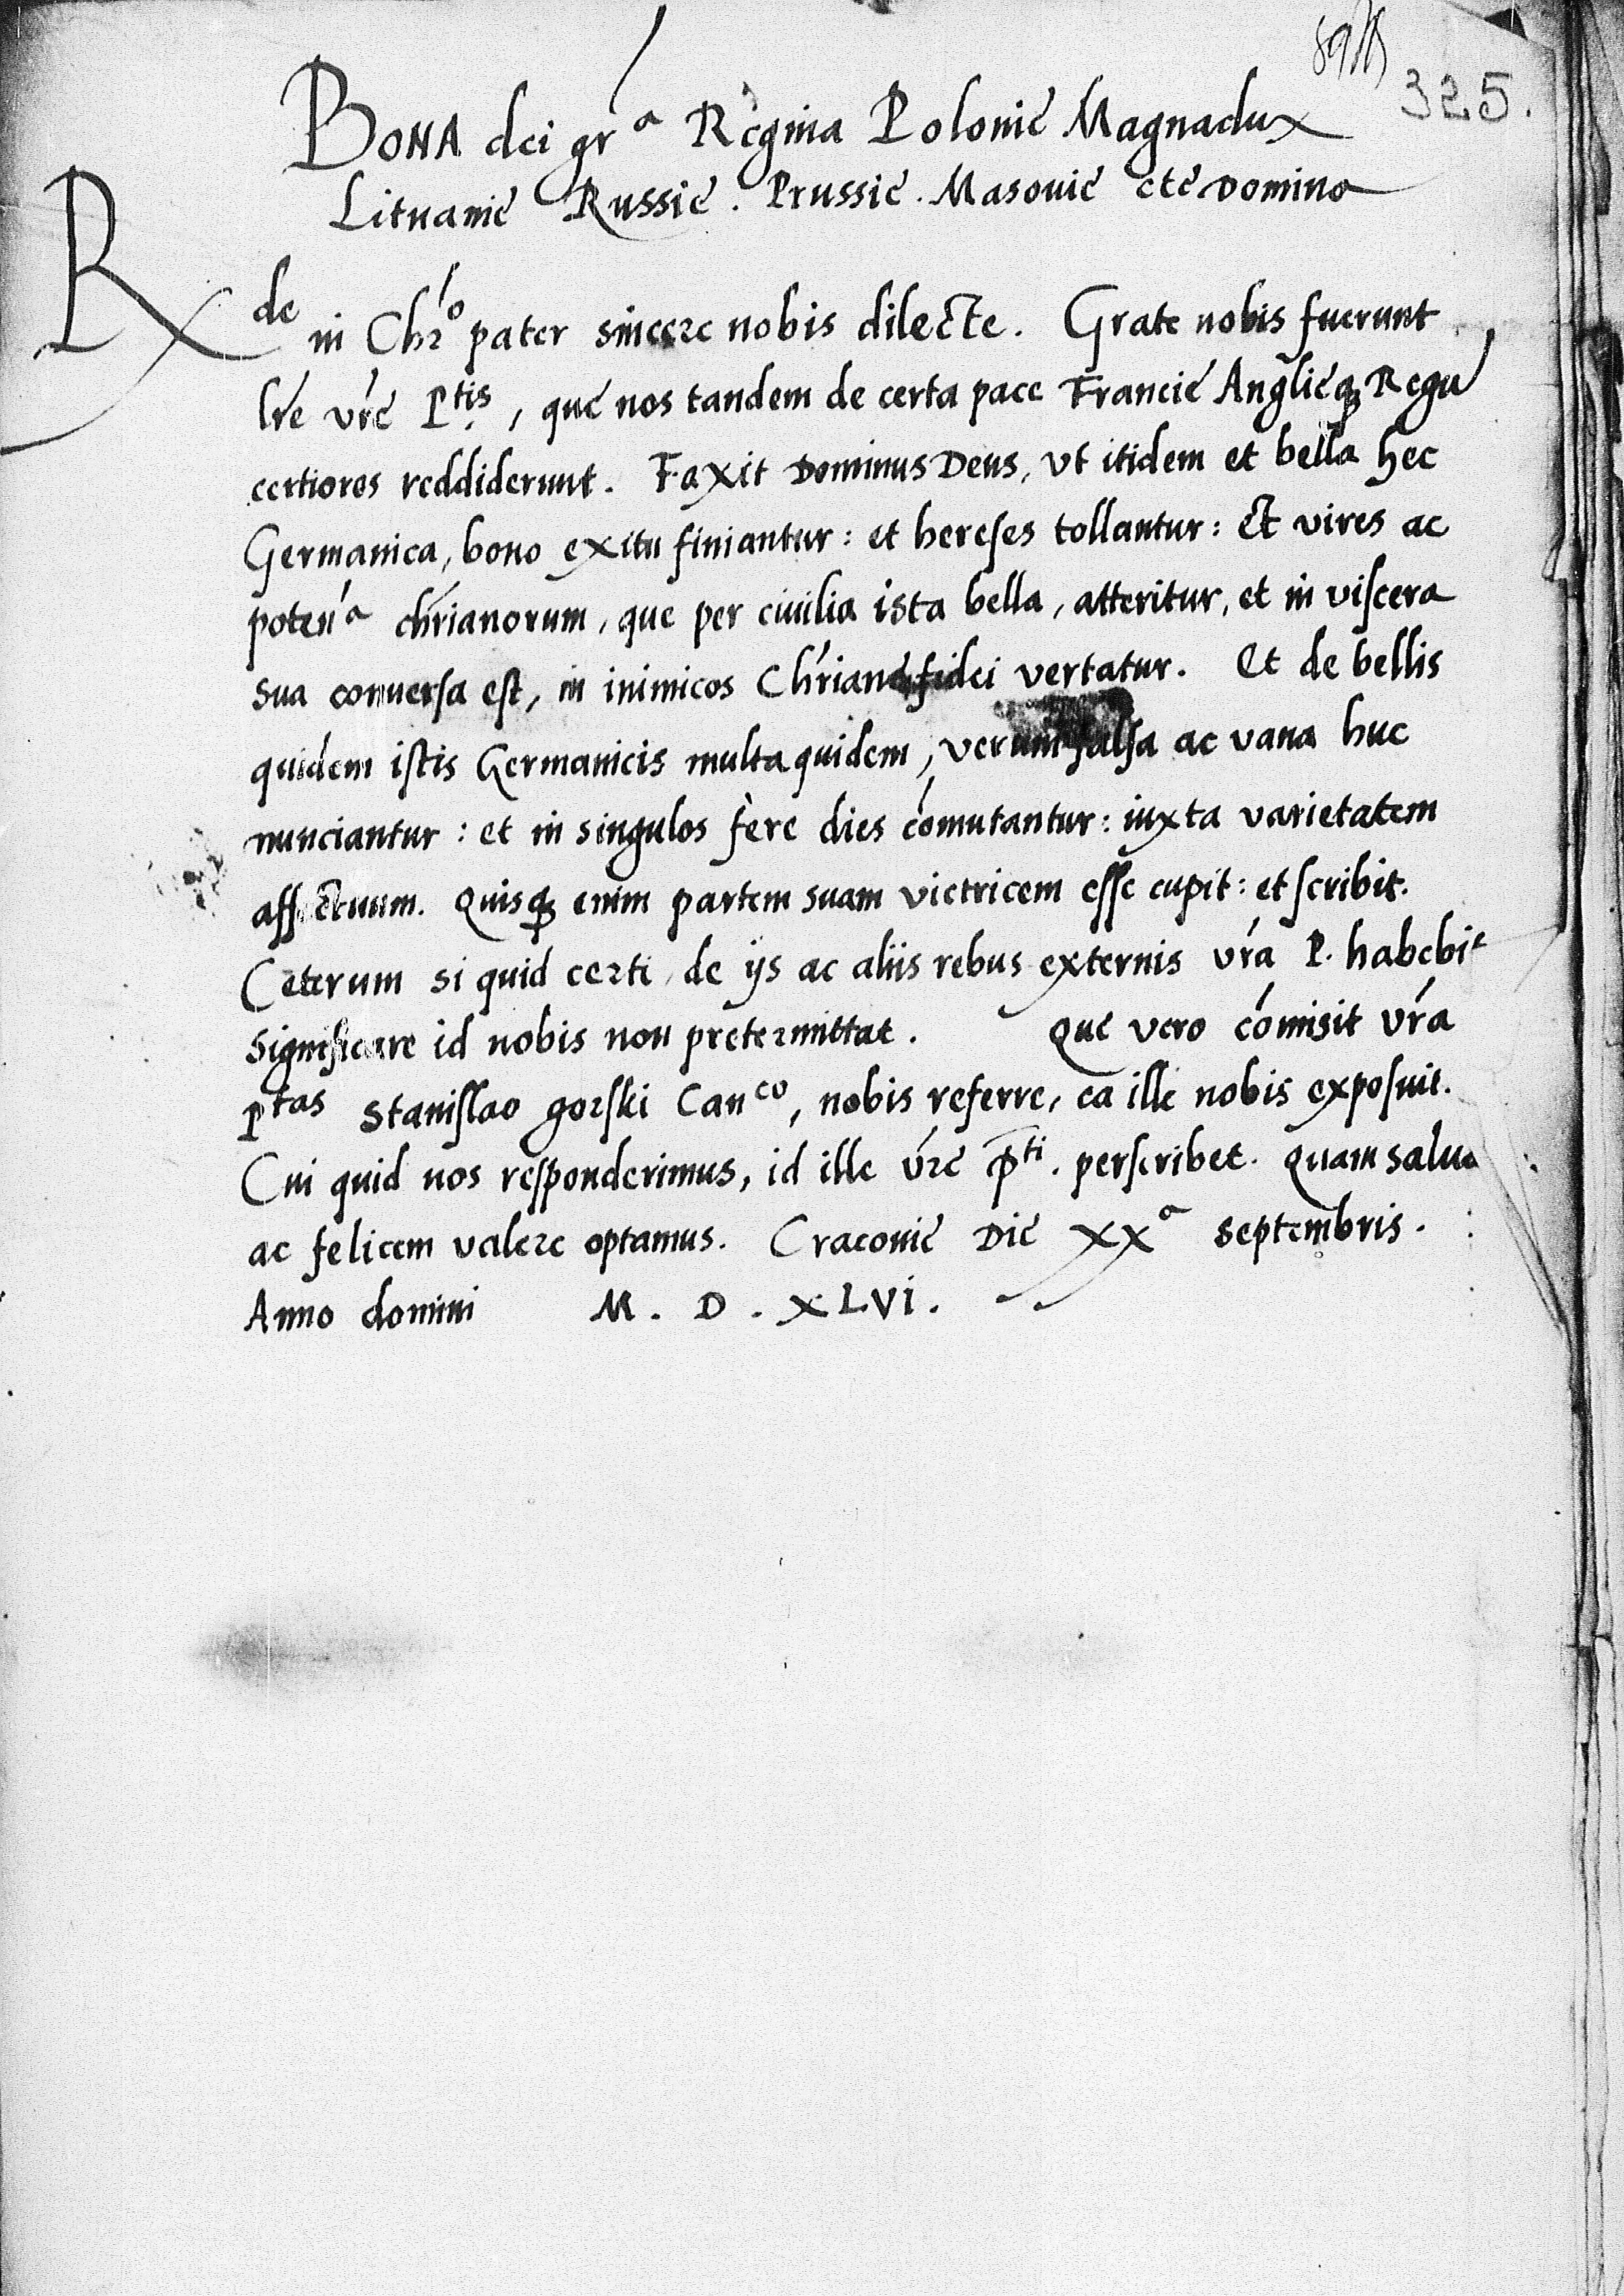 325.
BONA dei grᵃ Regina Polonie Magnadux
Lituanie Russie. Prussie. Masouie etc Domina
Rde in Chr̃o pater sincere nobis dilecte. Grate nobis fuerunt
lr̃e vr̃e Ptis, que nos tandem de certa pace Francie Anglieqꝫ Regũ
certiores reddiderunt. Faxit Dominus Deus, vt itidem et bella hec
Germanica, bono exitu finiantur: et hereses tollantur: Et vires ac
poten̄ᵃ chr̃ianorum, que per ciuilia ista bella, atteritur, et in viscera
sua conuersa est, in inimicos Chr̃iane fidei vertatur. Et de bellis
quidem istis Germanicis multa quidem, verum falsa ac vana huc
nunciantur: et in singulos fère dies cómutantur: iuxta varietatem
affectuum. Quisqꝫ enim partem suam victricem esse cupit: et scribit.
Ceterum si quid certi de ijs ac aliis rebus externis vr̃a P. habebit
significare id nobis non pretermittat. Que vero cómisit vr̃a
Ptas Stanislao gorski Canco, nobis referre, ea ille nobis exposuit.
Cui quid nos responderimus, id ille vr̃e p̄ti. perscribet. Quam salua
ac felicem valere optamus. Cracouie Die XXᵃ Septembris.
Anno domini M. D. XLVI.